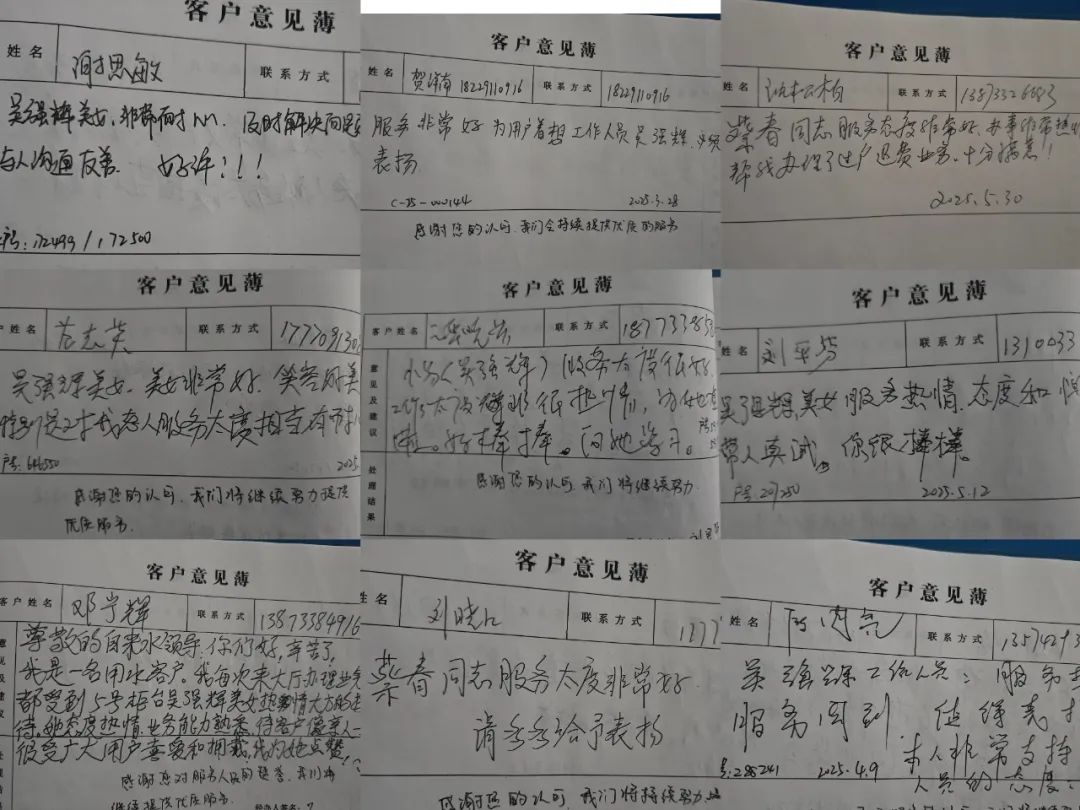 客户意见薄
姓名 谢思敏 联系方式
吴强辉美女,非常耐心、及时解决问题
与人沟通友善. 好评!!!
户号:172499/172500
客户意见薄
姓名 贺 18229110916 联系方式 18229110916
服务非常好 为用户着想 工作人员吴强辉
表扬.
C-25-000144 2025.3.28
感谢您的认可,我们会持续提供优质的服务
客户意见薄
姓名 联系方式
柴春同志服务态度非常好,办事非常热
帮我办理了过户退费业务,十分满意!
2025.5.30
客户意见薄
户姓名 范志英 联系方式
吴强辉美女,美女非常好,笑容的美
特别是对我老人服务态度相当有耐心
户号:646550 2025
感谢您的认可,我们将继续努力提供
优质服务.
客户意见薄
客户姓名 联系方式 187733858
意见及建议
小吴(吴强辉)服务态度很好.
工作态度 很热情,
好棒棒。向她学习。
处理结果
感谢您的认可,我们将继续努力.
客户意见薄
姓名 刘平 联系方式 1310033
吴强辉美女服务热情、态度和
常人真诚。你很棒棒。
户号 207250 2025.5.12
客户意见薄
客户姓名 邓宇辉 联系方式 13873384916
尊敬的自来水领导,你们好,辛苦了,
我是一名用水客户。我每次来大厅办理业务
都受到5号柜台吴强辉美女热情大方的接
待,她态度热情,业务能力熟悉,待客户像亲人一
很受广大用户喜爱和拥戴,我为她点赞,
感谢您对服务人员的赞誉,我们将
继续提供优质服务.
客户意见薄
姓名 刘晓 联系方式 1777
柴春同志服务态度非常好
请多多给予表扬
感谢您的认可,我们将持续努力
客户意见薄
姓名 联系方式
吴强辉工作人员: 服务
服务周到 值得表扬
本人非常支持
号:298241 2025.4.9 人员的态度.